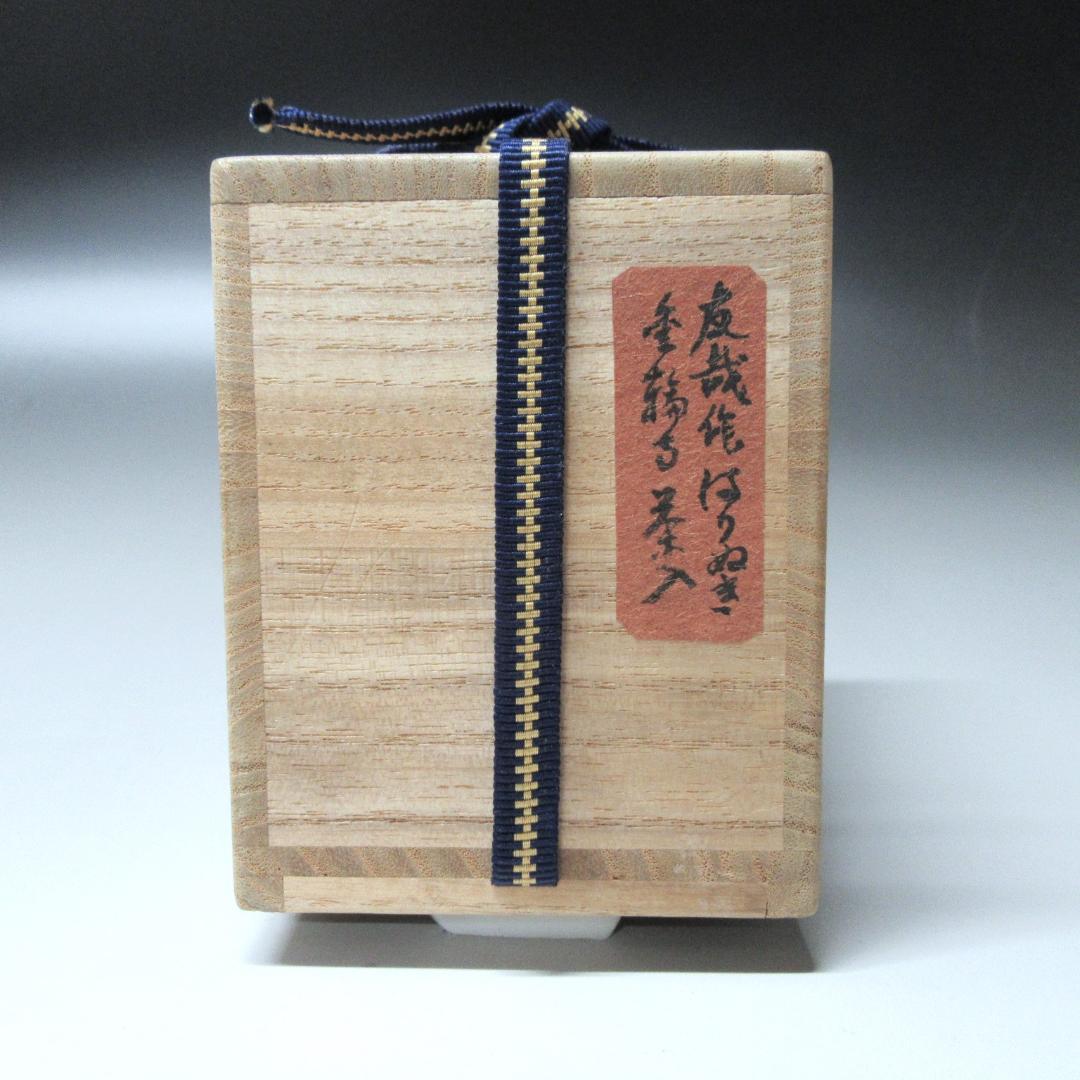 友哉作 はりぬき
金輪寺 茶入